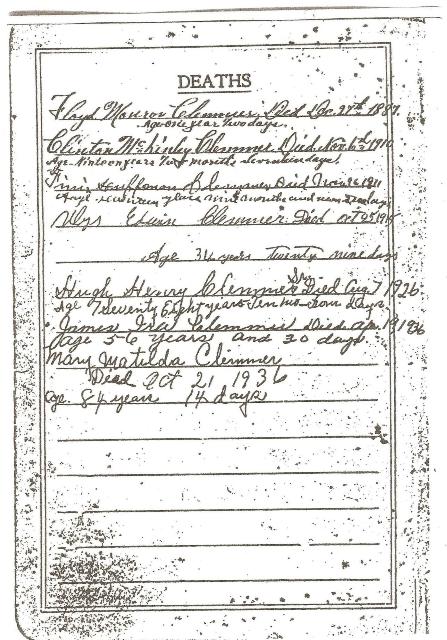 DEATHS
Floyd Monroe Clemmer. Died Dec. 27th 1887.
Age one year Two days.
Clinton McKinley Clemmer Died. Nov. 6th 1910
Age - Nineteen years Two months Seventeen days.
Clemmer Died 1911
Age Seventeen years nine months and days
Ulys Erwin Clemmer. Died Oct 25
Age 34 years twenty nine days
Hugh Henry Clemmer Sr. Died Aug 7 1926
Age Seventy Eight years Ten mo. four days
James Ira Clemmer Died Apr. 19 1936
Age 56 years and 30 days
Mary Matilda Clemmer
Died Oct 21, 1936
age. 84 years 14 days